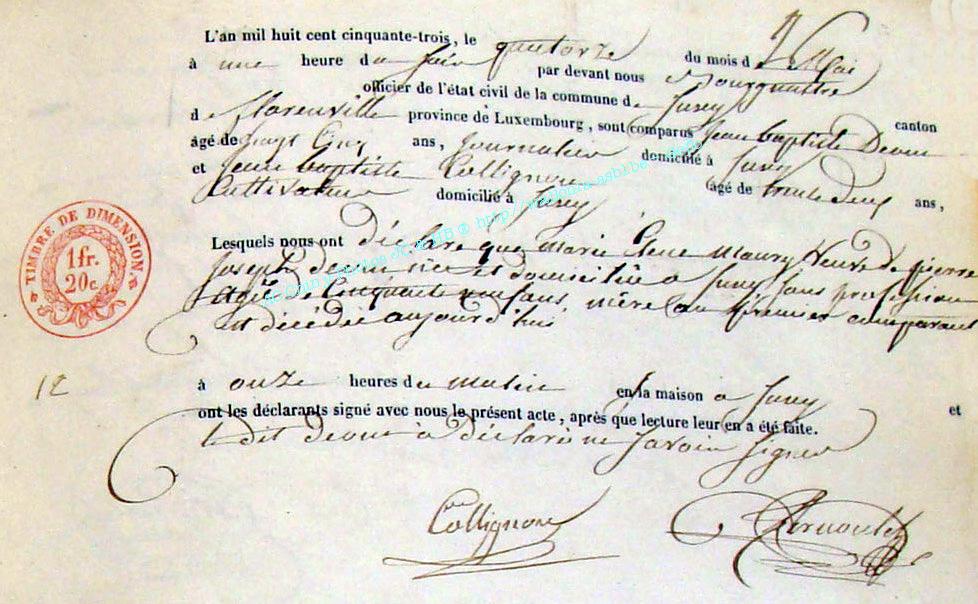 L'an mil huit cent cinquante-trois, le quatorze du mois de Mai
à une heure du soir par devant nous Bourgmestre
officier de l'état civil de la commune de Suxy canton
de florenville province de Luxembourg, sont comparus Jean baptiste
âgé de vingt Cinq ans, Journalier domicilié à Suxy
et Jean baptiste Collignon âgé de trente deux ans,
Cultivateur domicilié à Suxy
Lesquels nous ont déclaré que Marie Maury Veuve de pierre
Joseph née et domiciliée a Suxy sans profession
Agée de Cinquante neuf ans, mère au premier comparant
est décédée aujourd'hui
12
à onze heures du matin en la maison a Suxy et
ont les déclarants signé avec nous le présent acte, après que lecture leur en a été faite.
le dit à déclaré ne savoir signer
Collignon
TIMBRE DE DIMENSION
1 fr.
20 c.